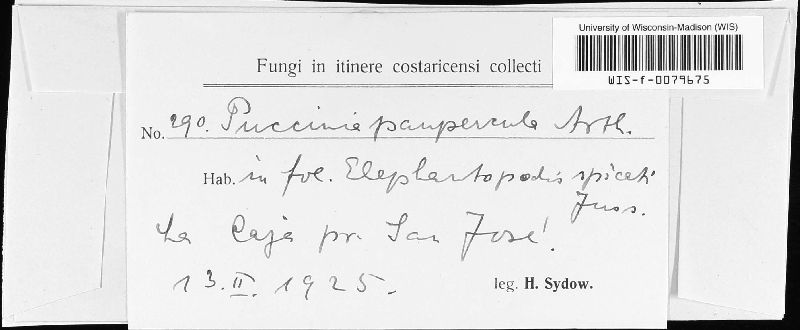 University of Wisconsin-Madison (WIS)
WIS-f-0079675
Fungi in itinere costaricensi collecti
No. 290. Puccinia paupercula Arth.
Hab. in fol. Elephantopodis spicati
Juss.
La Caja pr. San José.
13. II. 1925.
leg. H. Sydow.